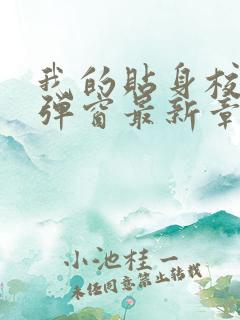 我的贴身校
弹窗最新章
小池桂一
未经同意禁止转载